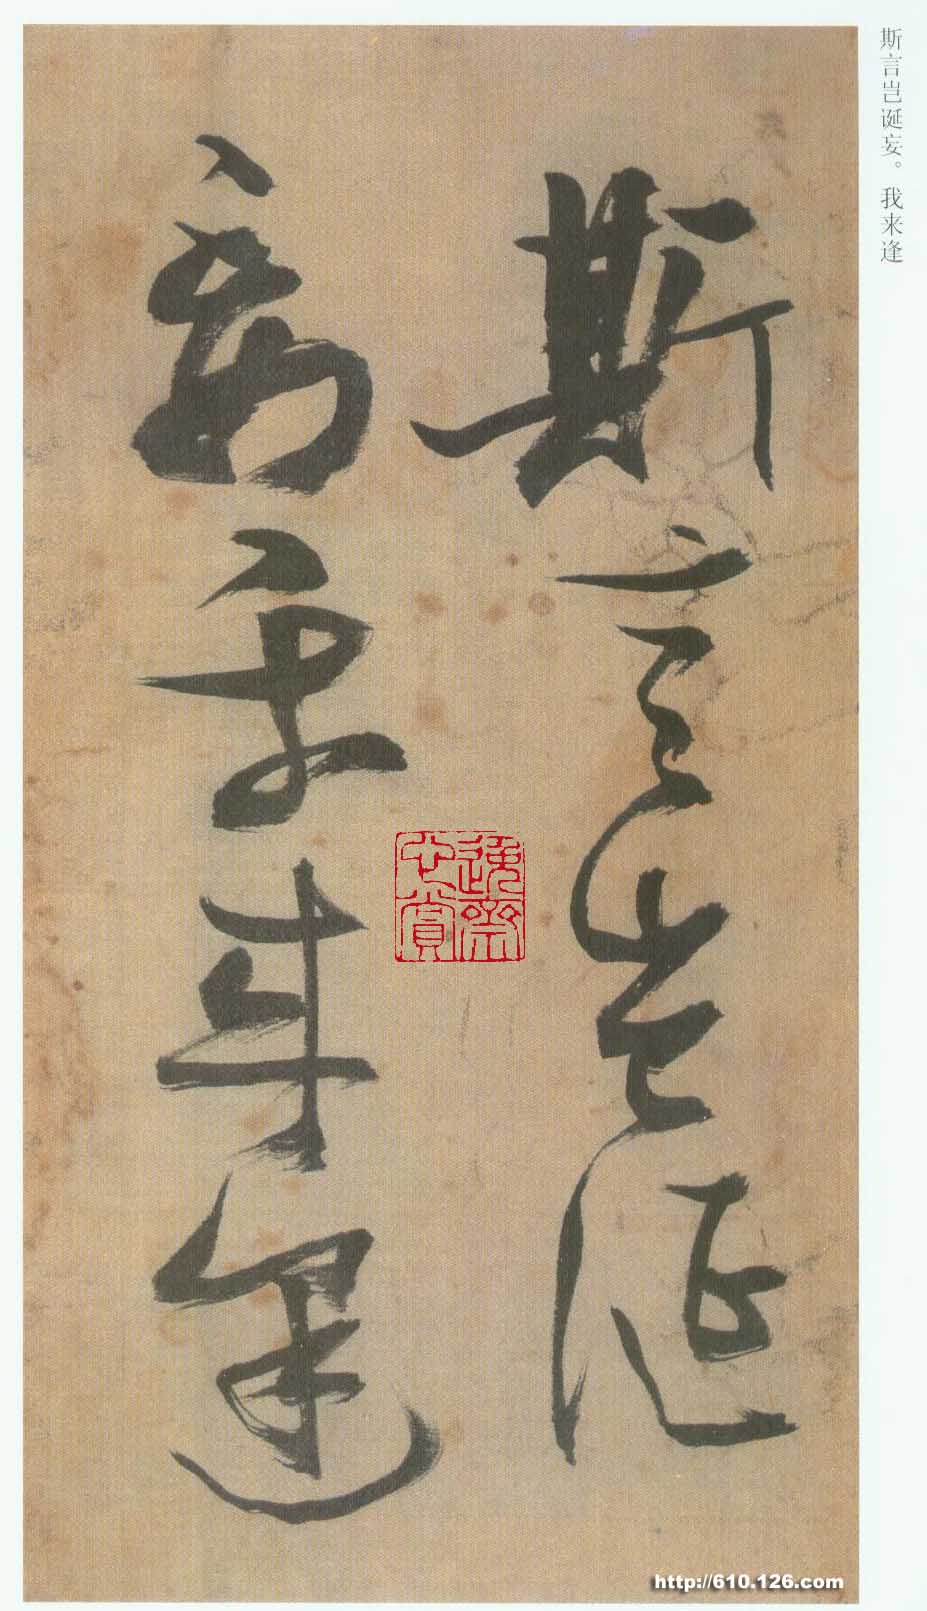 斯言岂诞妄。我来逢
斯言豈誕
妄我来逢
http://610.126.com